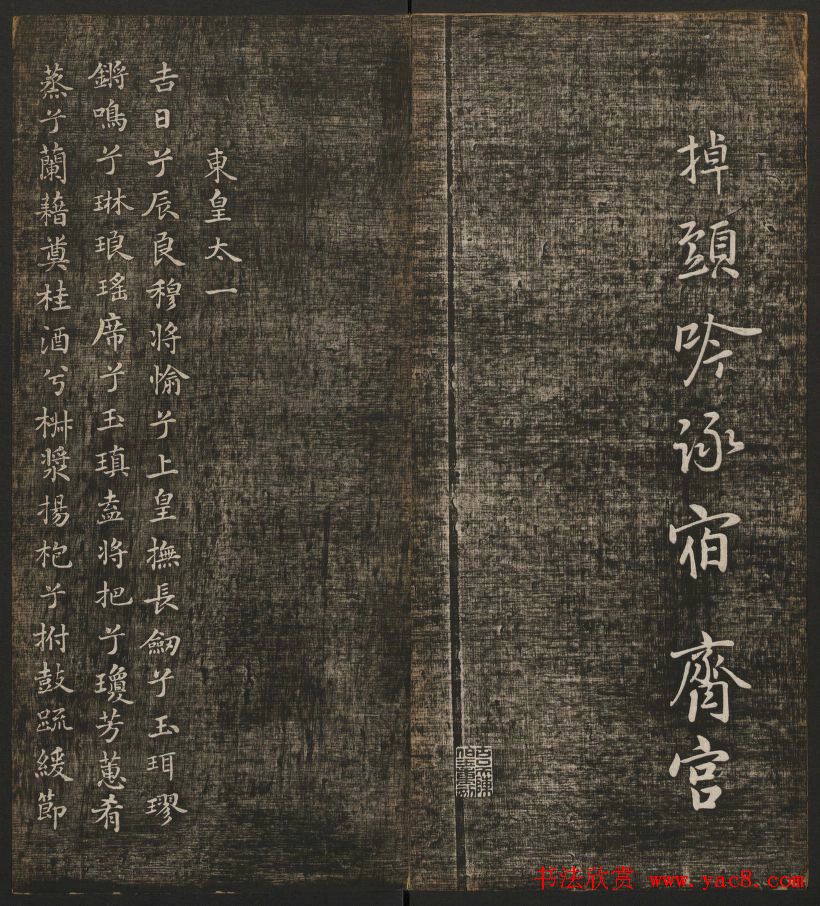 掉頭吟詠宿齋宮
東皇太一
吉日兮辰良穆將愉兮上皇撫長劒兮玉珥璆
鏘鳴兮琳琅瑤席兮玉瑱盍將把兮瓊芳蕙肴
蒸兮蘭藉奠桂酒兮椒漿揚枹兮拊鼓疏緩節
书法欣赏 www.yac8.com